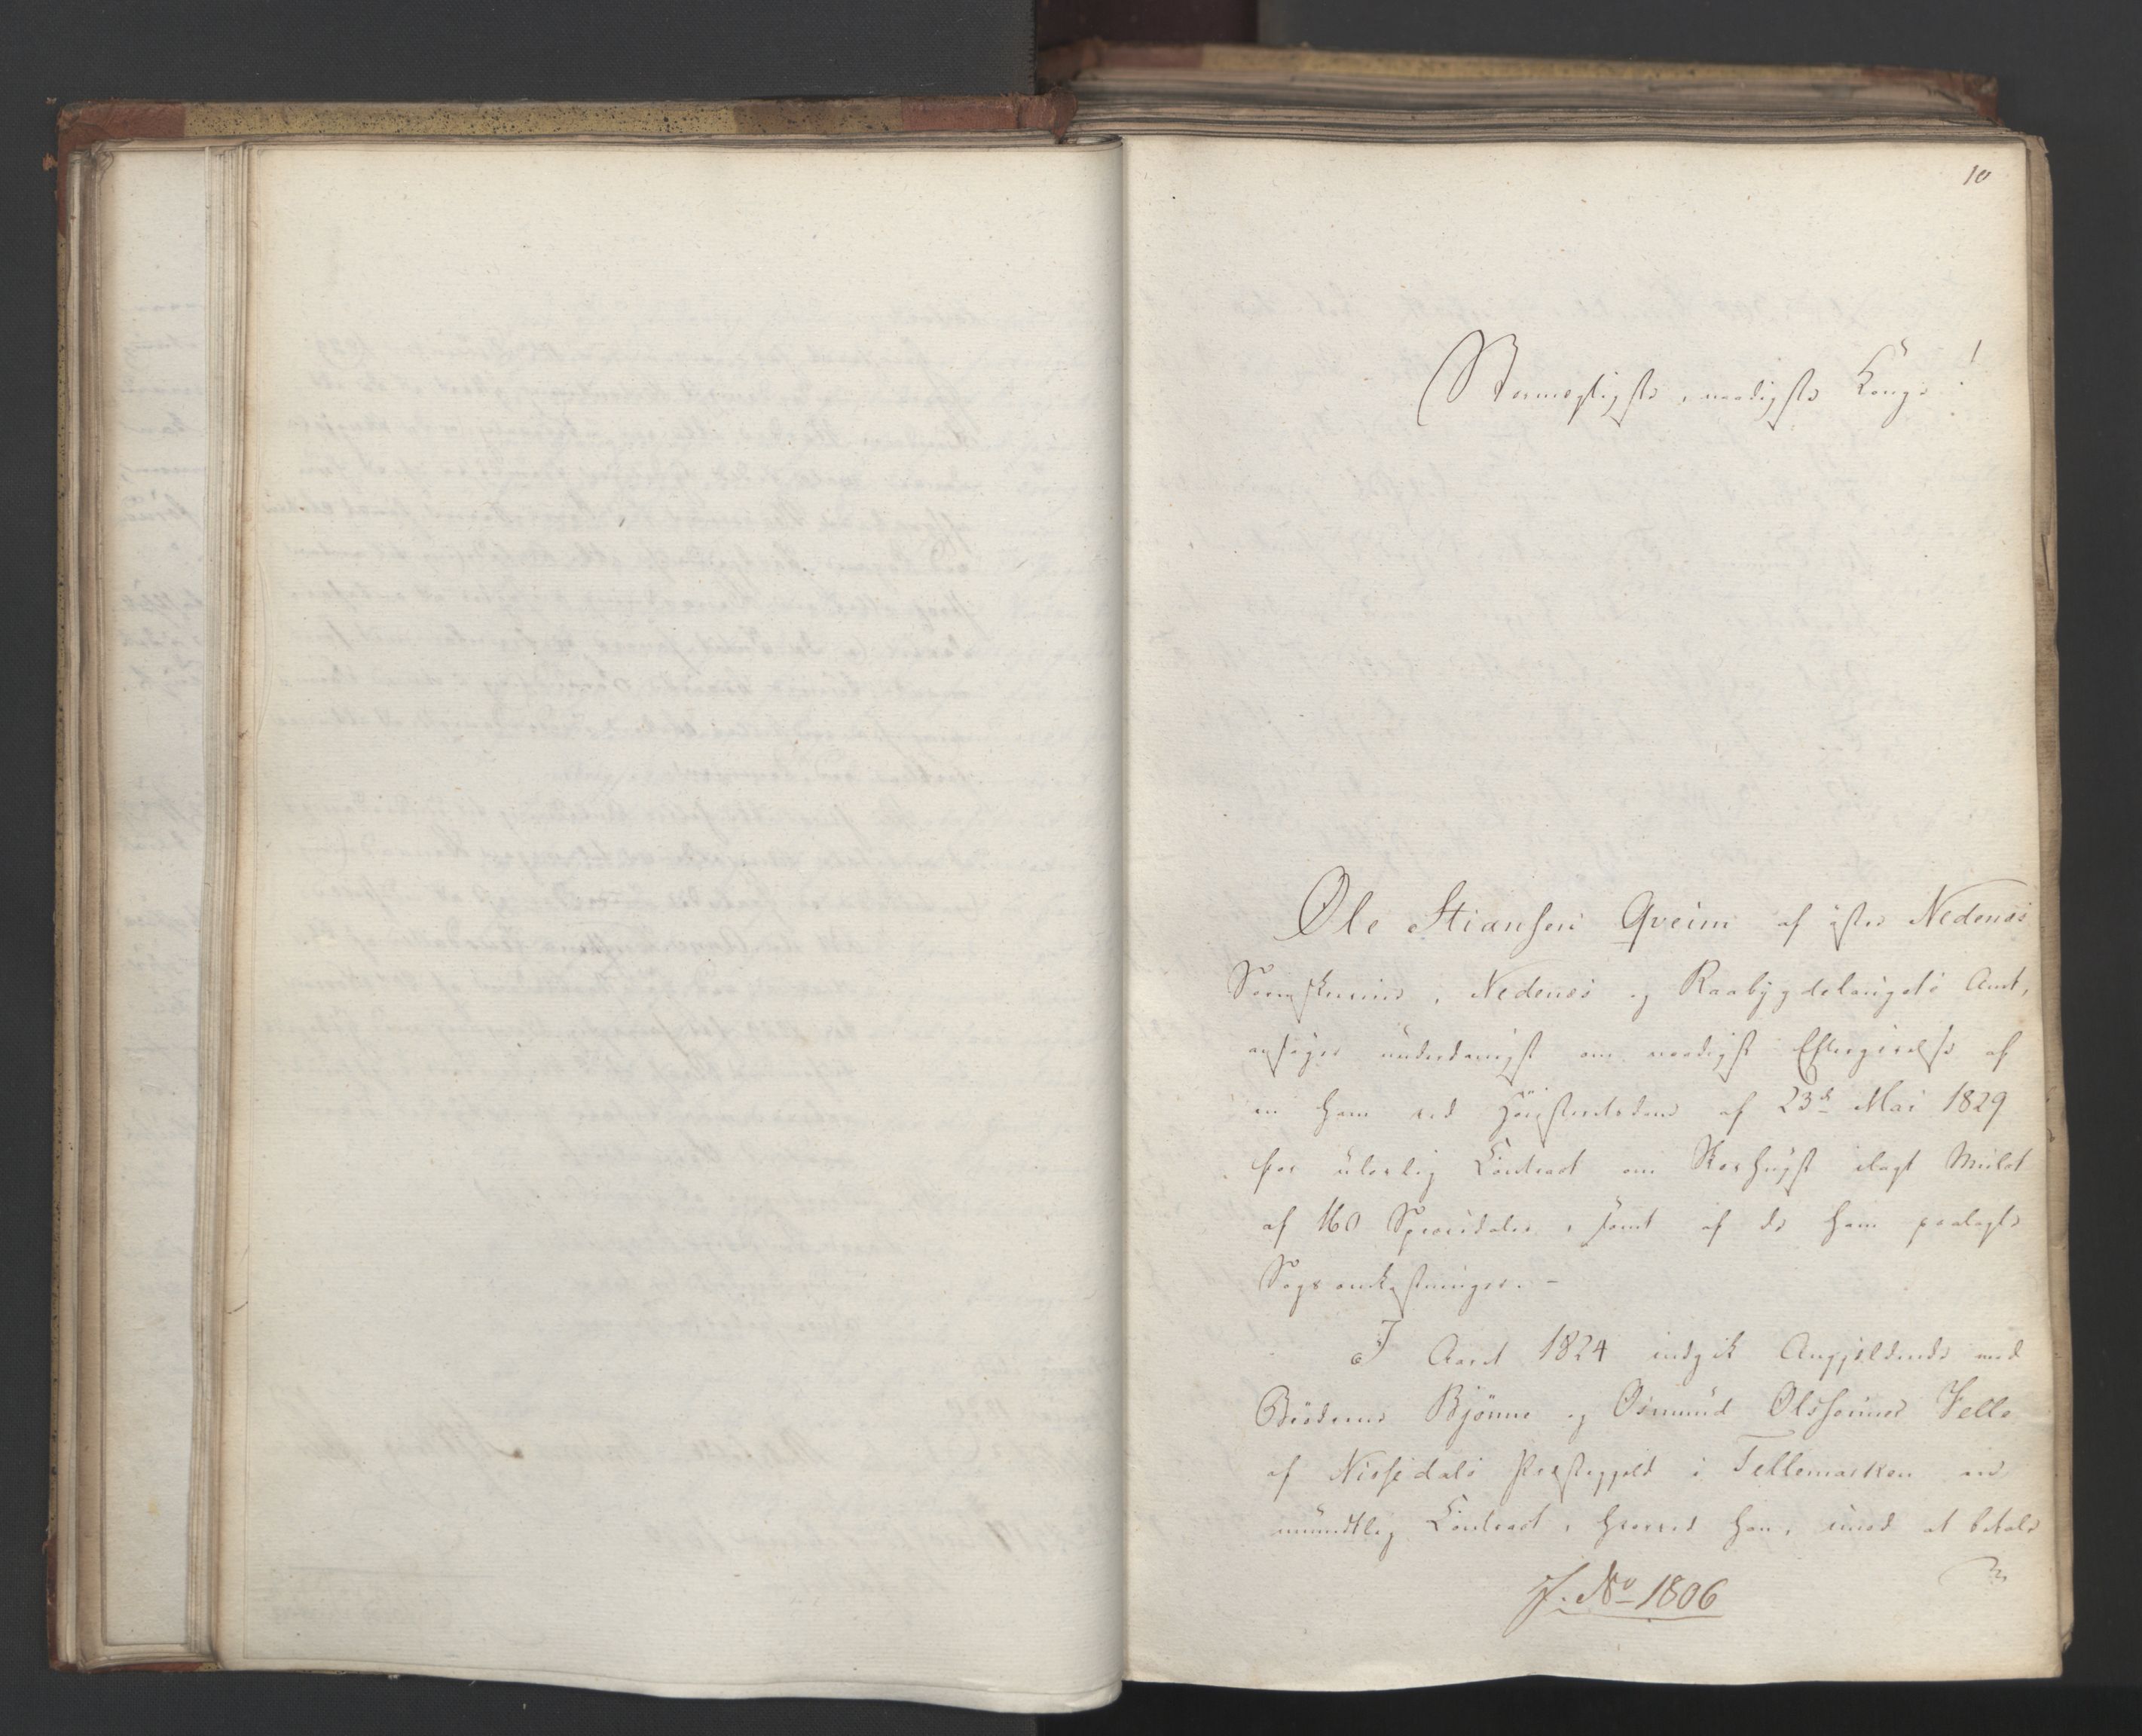 10
Stormægtigste, naadigste Konge!
Ole Stiansen Qveim af østre Nedenæs
Sorenskriverie, Nedenæs og Raabygdelaugets Amt,
ansøger underdanigst om naadigst Eftergivelse af
en ham ved Höiesteretsdom af 23de Mai 1829
for ulovlig Contract om Skovhugst ilagt Mulct
af 160 Speciedaler, samt af de ham paalagte
Sagsomkostninger. -
I Aaret 1824 indgik Angjeldende med
Brödrene Björne og Osmund Olssønner Felle
af Nissedals Præstegjeld i Tellemarken en
mundtlig Contract, hvorved han, imod at betale
J. No 1806